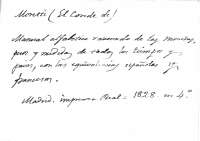 Moncri (El Conde de)
Manual alfabetico razonado de las monedas,
pesos y medidas de todos los tiempos y
paises, con las equivalencias españolas y
francesas.
Madrid. imprenta Real - 1828 en 4.º